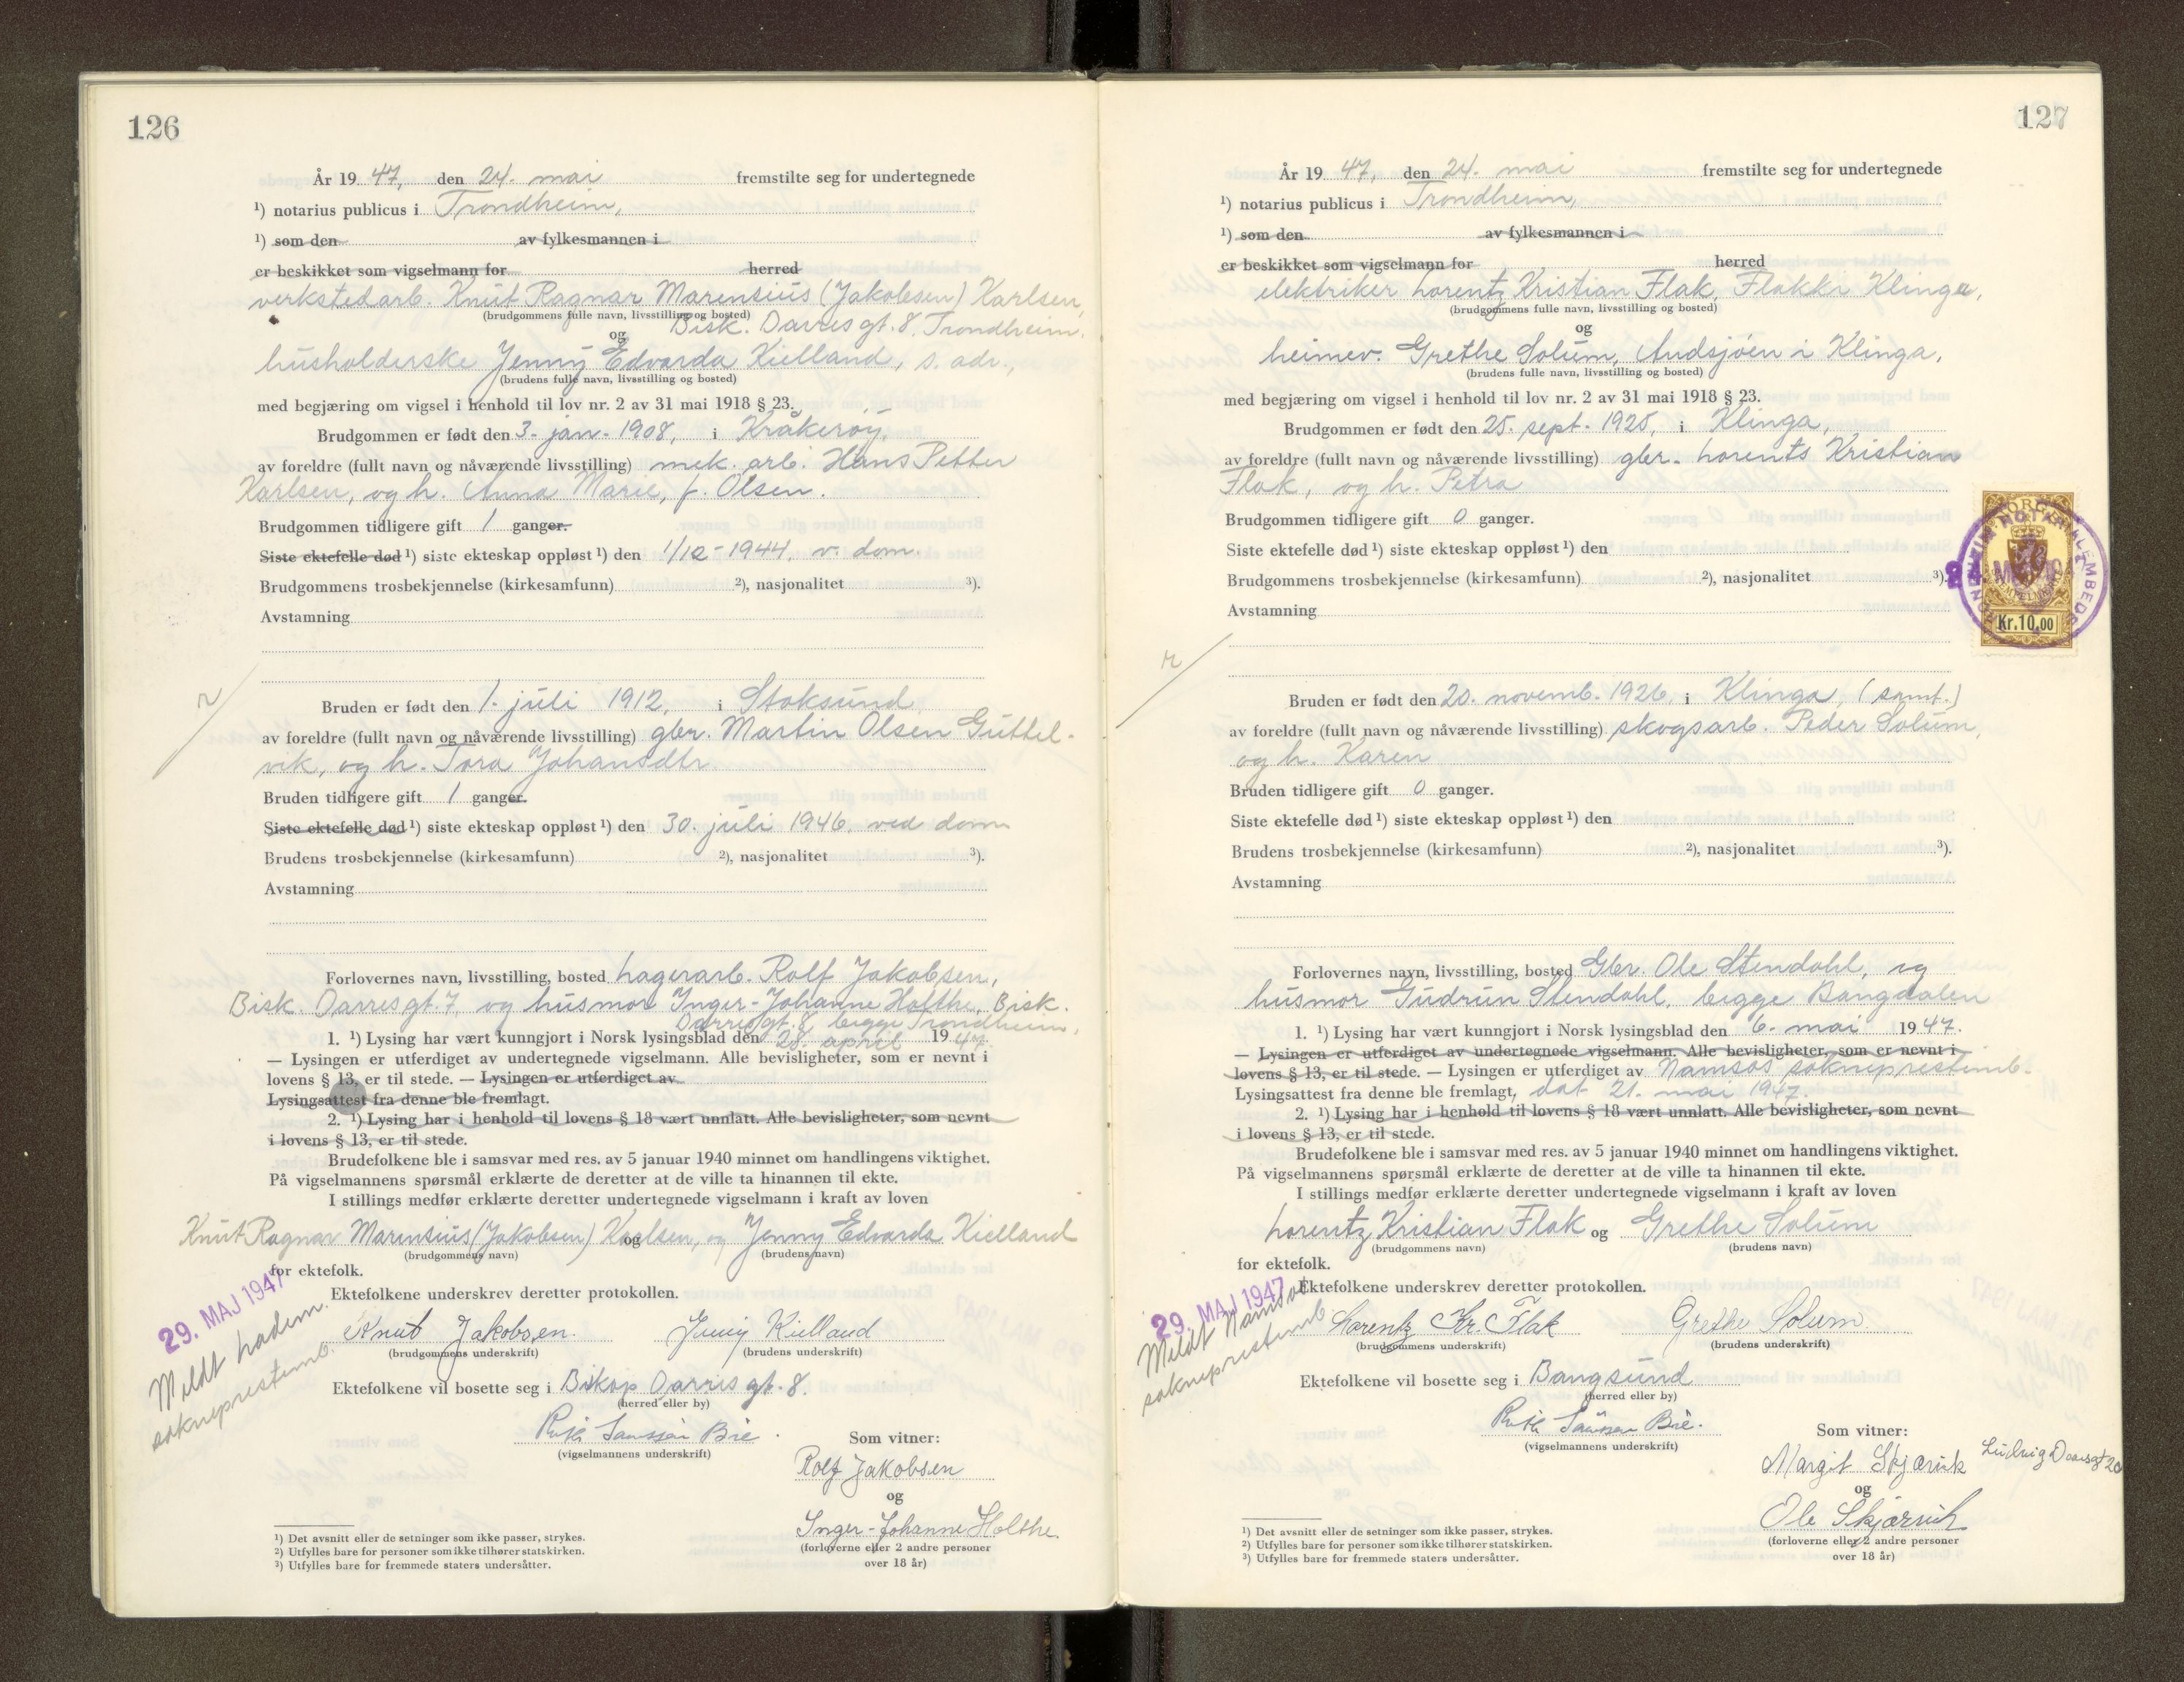 126
År 19 47, den 24. mai fremstilte seg for undertegnede
¹) notarius publicus i Trondheim,
¹) som den av fylkesmannen i
er beskikket som vigselmann for herred
verkstedarb. Knut Ragnar Marensius (Jakobsen) Karlsen,
(brudgommens fulle navn, livsstilling og bosted)
Bisk. Darres gt. 8, Trondheim.
og
husholderske Jenny Edvarda Kielland, s. adr.,
(brudens fulle navn, livsstilling og bosted)
med begjæring om vigsel i henhold til lov nr. 2 av 31 mai 1918 § 23.
Brudgommen er født den 3. jan. 1908, i Kråkerøy,
av foreldre (fullt navn og nåværende livsstilling) mek. arb. Hans Petter
Karlsen, og h. Anna Marie, f. Olsen.
Brudgommen tidligere gift 1 ganger.
Siste ektefelle død ¹) siste ekteskap oppløst ¹) den 1/12-1944, v. dom.
Brudgommens trosbekjennelse (kirkesamfunn) ²), nasjonalitet ³).
Avstamning
Bruden er født den 1. juli 1912, i Stoksund
av foreldre (fullt navn og nåværende livsstilling) gbr. Martin Olsen Guttel-
vik, og h. Tora Johansdtr.
Bruden tidligere gift 1 ganger.
Siste ektefelle død ¹) siste ekteskap oppløst ¹) den 30. juli 1946. ved dom
Brudens trosbekjennelse (kirkesamfunn) ²), nasjonalitet ³).
Avstamning
Forlovernes navn, livsstilling, bosted Lagerarb. Rolf Jakobsen,
Bisk. Darres gt. 7, og husmor Inger-Johanne Holthe, Bisk.
Darres gt. 8, begge Trondheim,
1. ¹) Lysing har vært kunngjort i Norsk lysingsblad den 28. april 19 47.
— Lysingen er utferdiget av undertegnede vigselmann. Alle bevisligheter, som er nevnt i
lovens § 13, er til stede. — Lysingen er utferdiget av
Lysingsattest fra denne ble fremlagt.
2. ¹) Lysing har i henhold til lovens § 18 vært unnlatt. Alle bevisligheter, som nevnt
i lovens § 13, er til stede.
Brudefolkene ble i samsvar med res. av 5 januar 1940 minnet om handlingens viktighet.
På vigselmannens spørsmål erklærte de deretter at de ville ta hinannen til ekte.
I stillings medfør erklærte deretter undertegnede vigselmann i kraft av loven
Knut Ragnar Marensius (Jakobsen) Karlsen, og Jenny Edvarda Kielland
(brudgommens navn) og (brudens navn)
for ektefolk.
Ektefolkene underskrev deretter protokollen.
29. MAJ 1947
Meldt Ladem.
sokneprestemb.
Knut Jakobsen. Jenny Kielland
(brudgommens underskrift) (brudens underskrift)
Ektefolkene vil bosette seg i Biskop Darres gt. 8.
(herred eller by)
Ruth Bie.
(vigselmannens underskrift)
Som vitner:
Rolf Jakobsen
og
Inger-Johanne Holthe.
(forloverne eller 2 andre personer
over 18 år)
¹) Det avsnitt eller de setninger som ikke passer, strykes.
²) Utfylles bare for personer som ikke tilhører statskirken.
³) Utfylles bare for fremmede staters undersåtter.
127
År 19 47, den 24. mai fremstilte seg for undertegnede
¹) notarius publicus i Trondheim,
¹) som den av fylkesmannen i
er beskikket som vigselmann for herred
elektriker Lorentz Kristian Flak, Flakki Klinga,
(brudgommens fulle navn, livsstilling og bosted)
og
heimev. Grethe Solum, Andsjøen i Klinga,
(brudens fulle navn, livsstilling og bosted)
med begjæring om vigsel i henhold til lov nr. 2 av 31 mai 1918 § 23.
Brudgommen er født den 25. sept. 1925, i Klinga,
av foreldre (fullt navn og nåværende livsstilling) gbr. Lorents Kristian
Flak, og h. Petra
Brudgommen tidligere gift 0 ganger.
Siste ektefelle død ¹) siste ekteskap oppløst ¹) den
Brudgommens trosbekjennelse (kirkesamfunn) ²), nasjonalitet ³).
Avstamning
NORGE
Kr. 10.00
Bruden er født den 20. novemb. 1926, i Klinga, (samt.)
av foreldre (fullt navn og nåværende livsstilling) skogsarb. Peder Solum,
og h. Karen
Bruden tidligere gift 0 ganger.
Siste ektefelle død ¹) siste ekteskap oppløst ¹) den
Brudens trosbekjennelse (kirkesamfunn) ²), nasjonalitet ³).
Avstamning
Forlovernes navn, livsstilling, bosted Gbr. Ole Stendahl, og
husmor Gudrun Stendahl, begge Bangdalen
1. ¹) Lysing har vært kunngjort i Norsk lysingsblad den 6. mai 19 47.
— Lysingen er utferdiget av undertegnede vigselmann. Alle bevisligheter, som er nevnt i
lovens § 13, er til stede. — Lysingen er utferdiget av Namsos sokneprestemb.
Lysingsattest fra denne ble fremlagt, dat 21. mai 1947.
2. ¹) Lysing har i henhold til lovens § 18 vært unnlatt. Alle bevisligheter, som nevnt
i lovens § 13, er til stede.
Brudefolkene ble i samsvar med res. av 5 januar 1940 minnet om handlingens viktighet.
På vigselmannens spørsmål erklærte de deretter at de ville ta hinannen til ekte.
I stillings medfør erklærte deretter undertegnede vigselmann i kraft av loven
Lorentz Kristian Flak og Grethe Solum
(brudgommens navn) (brudens navn)
for ektefolk.
Ektefolkene underskrev deretter protokollen.
29. MAJ 1947
Meldt Namsos
sokneprestemb.
Lorentz Kr. Flak Grethe Solum
(brudgommens underskrift) (brudens underskrift)
Ektefolkene vil bosette seg i Bangsund
(herred eller by)
Ruth Bie.
(vigselmannens underskrift)
Som vitner:
Margit Skjærvik Ludvig Daaesgt 20
og
Ole Skjærvik
(forloverne eller 2 andre personer
over 18 år)
¹) Det avsnitt eller de setninger som ikke passer, strykes.
²) Utfylles bare for personer som ikke tilhører statskirken.
³) Utfylles bare for fremmede staters undersåtter.